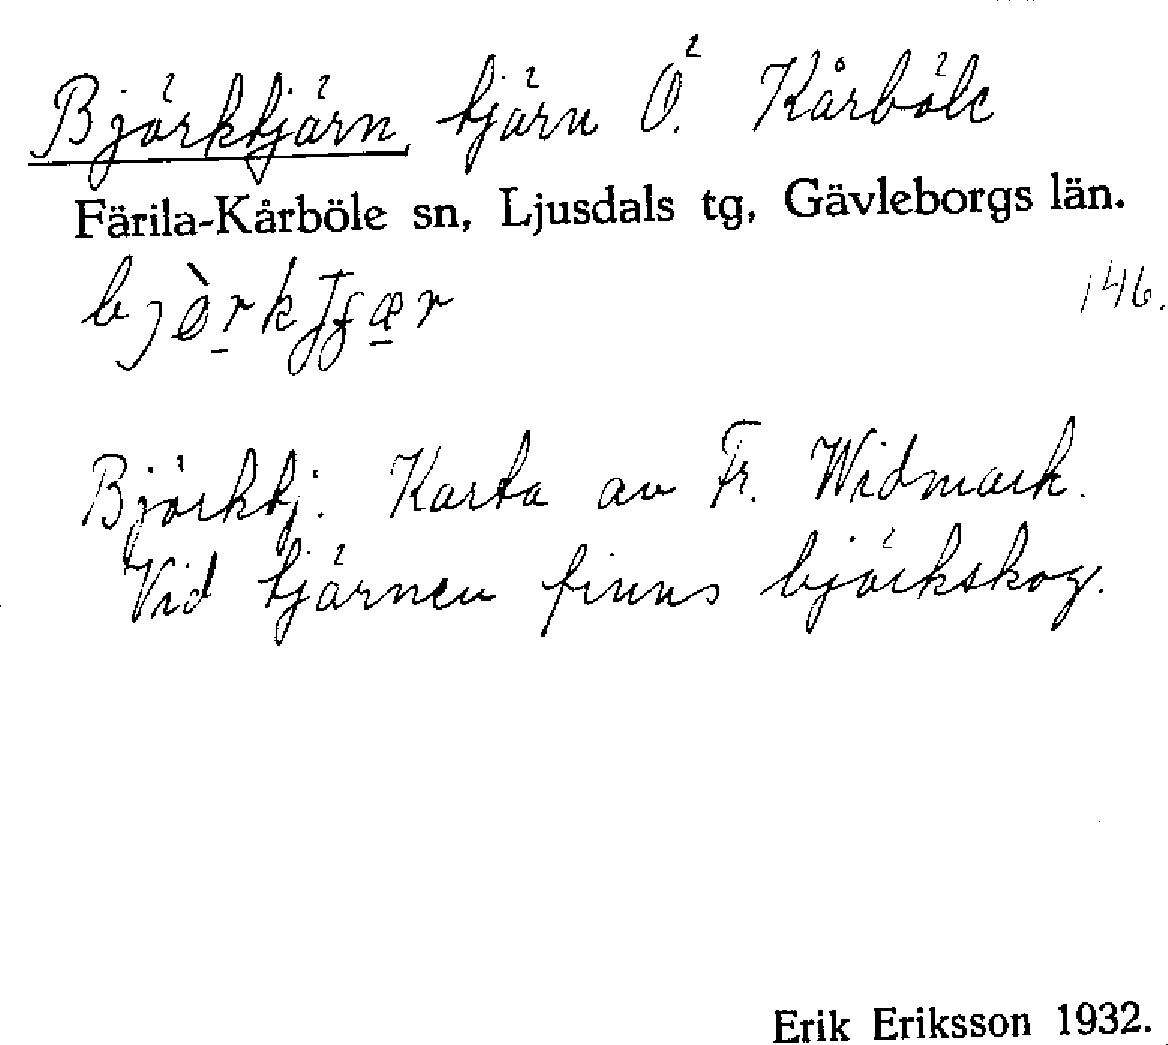 Björktjärn tjärn Ö. Kårböle
Färila-Kårböle sn, Ljusdals tg, Gävleborgs län.
146.
Björktj. Karta av Fr. Widmark.
Vid tjärnen finns björkskog.
Erik Eriksson 1932.